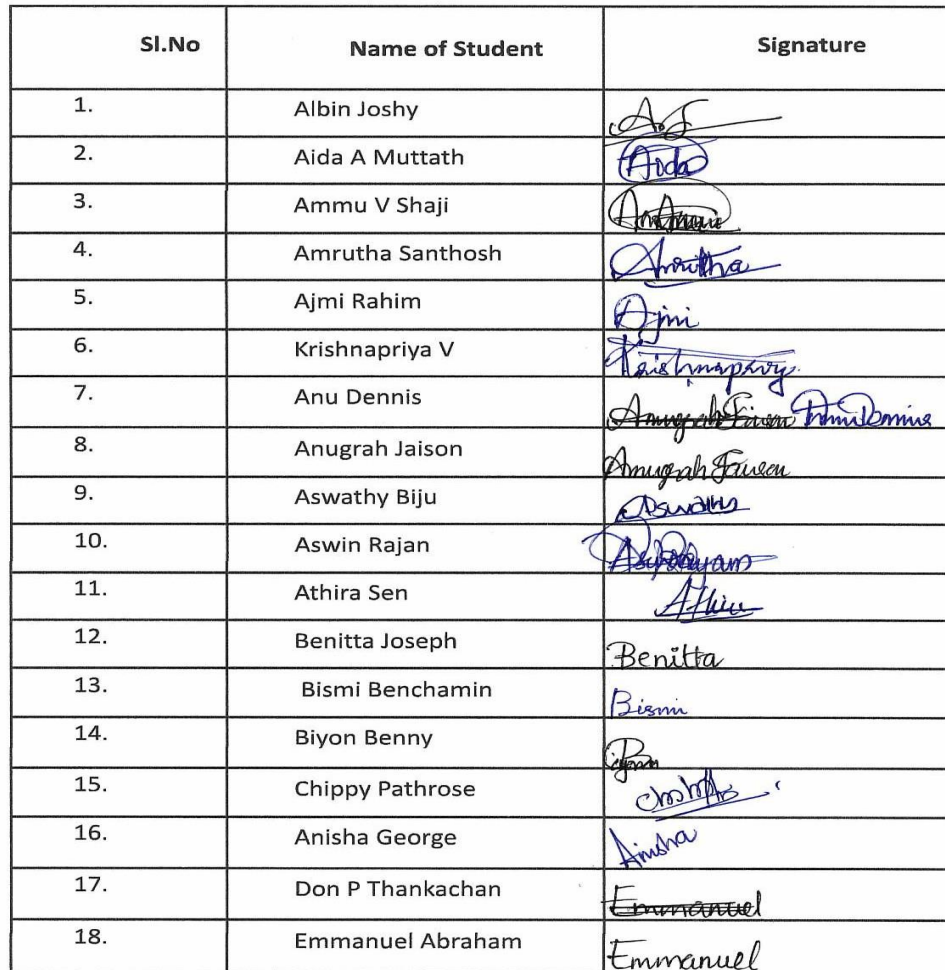 Sl.No Name of Student Signature
1. Albin Joshy A.J
2. Aida A Muttath Aida
3. Ammu V Shaji
4. Amrutha Santhosh Amritha
5. Ajmi Rahim Ajmi
6. Krishnapriya V
7. Anu Dennis Anugrah Jaison Anu Dennis
8. Anugrah Jaison Anugrah Jaison
9. Aswathy Biju Aswathy
10. Aswin Rajan
11. Athira Sen Athira
12. Benitta Joseph Benitta
13. Bismi Benchamin Bismi
14. Biyon Benny
15. Chippy Pathrose
16. Anisha George Anisha
17. Don P Thankachan Emmanuel
18. Emmanuel Abraham Emmanuel